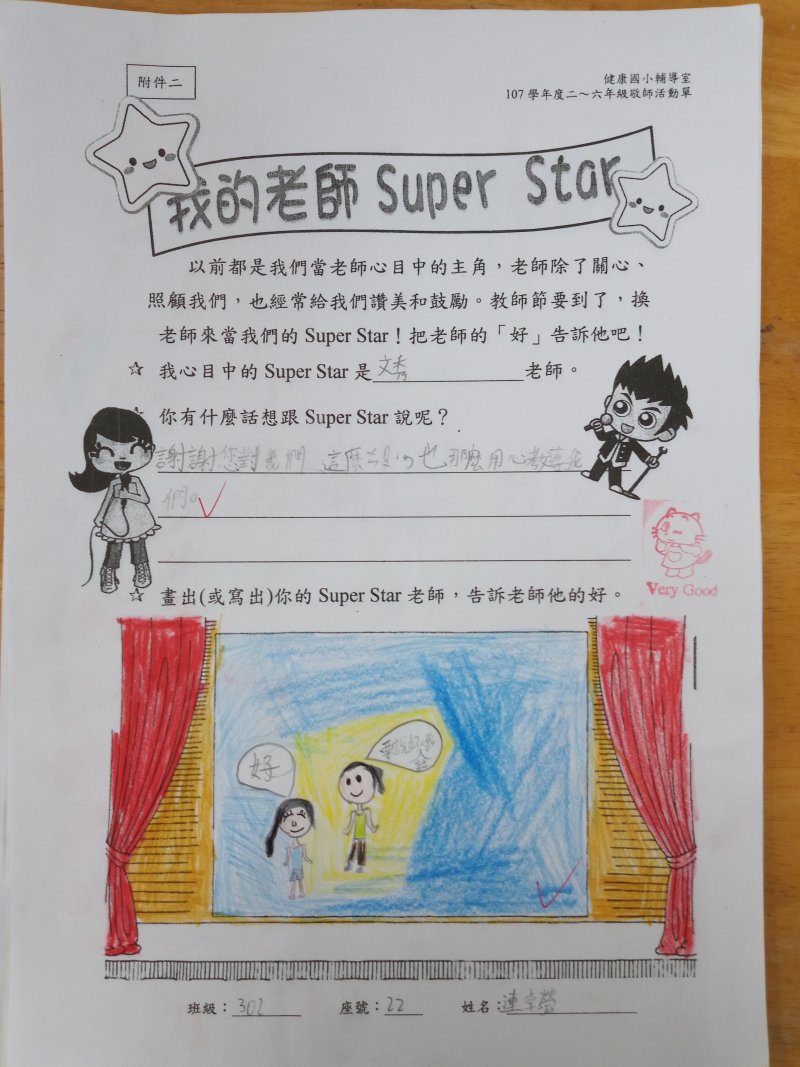 附件二
健康國小輔導室
107 學年度二～六年級敬師活動單
我的老師 Super Star
以前都是我們當老師心目中的主角，老師除了關心、
照顧我們，也經常給我們讚美和鼓勵。教師節要到了，換
老師來當我們的 Super Star！把老師的「好」告訴他吧！
☆ 我心目中的 Super Star 是文秀老師。
☆ 你有什麼話想跟 Super Star 說呢？
謝謝您對我們 這麼 也那麼用心教導我
們。
Very Good
☆ 畫出(或寫出)你的 Super Star 老師，告訴老師他的好。
好
要說好
話
班級：302 座號：22 姓名：連卓瑩